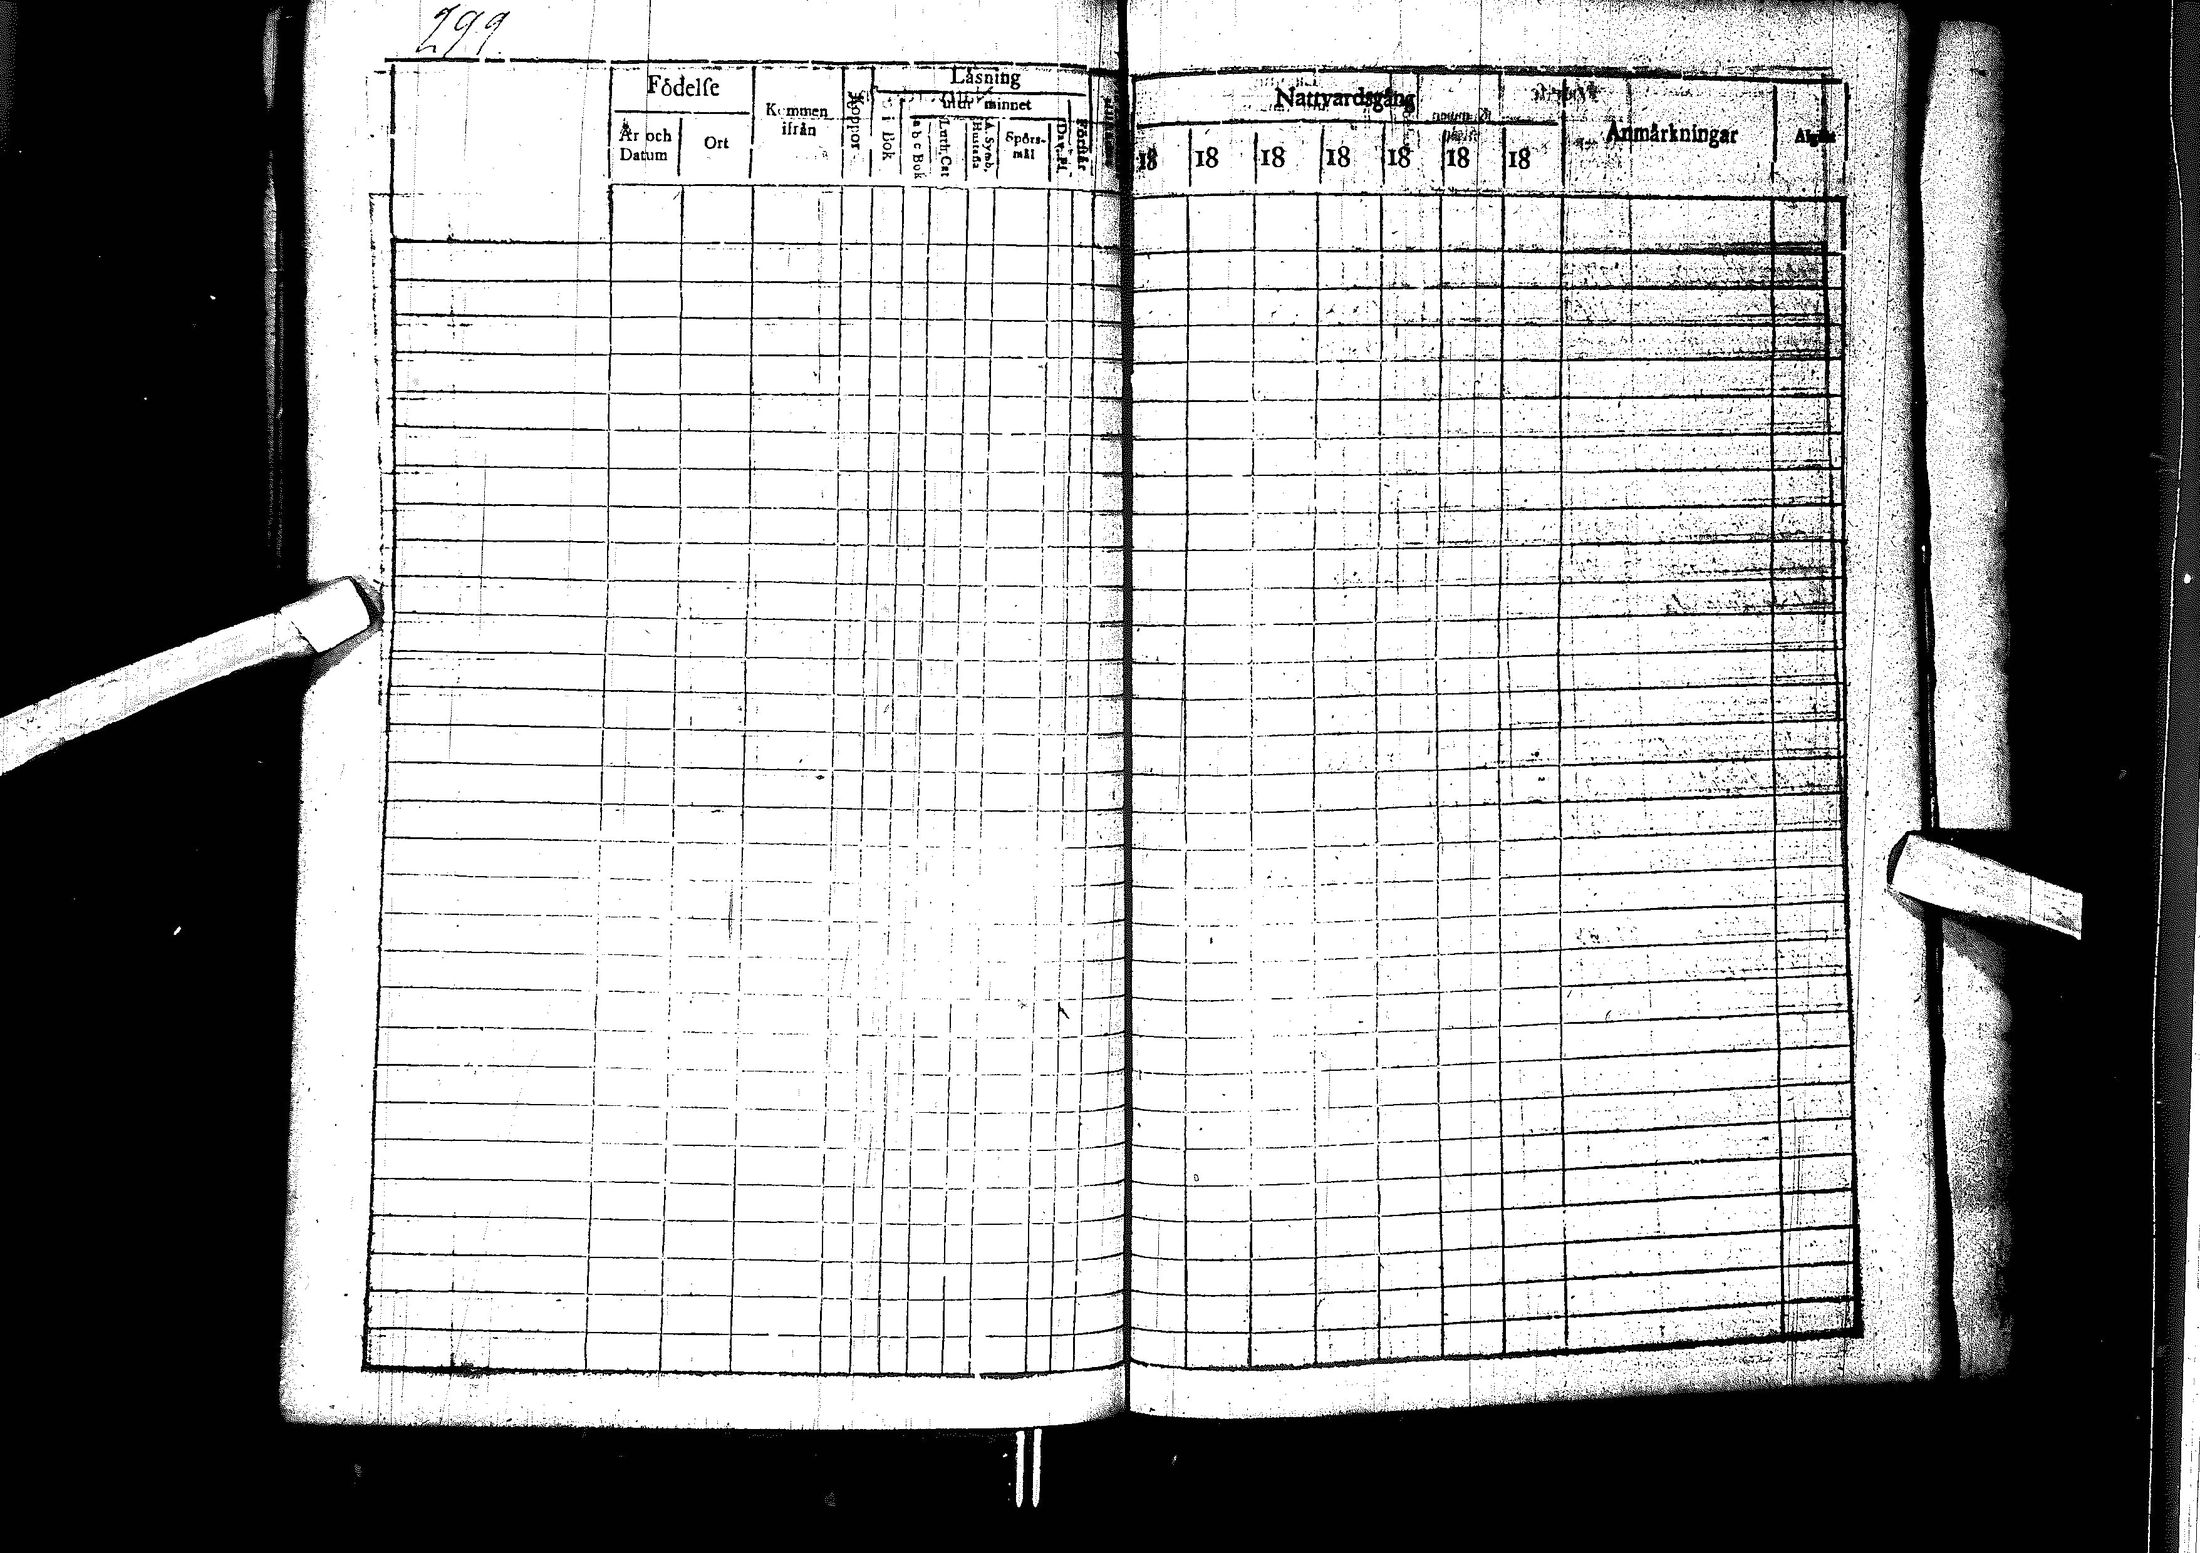 299.
Födelse
År och Datum
Ort
Kommen ifrån
Koppor
Läsning
i Bok
utur minnet
a b c Bok
Luth. Cat
A. Symb.
Hustafla
Spörs-mål
Dav. Ps
Förstår
Nattvardsgång
18 18 18 18 18 18 18
Anmärkningar